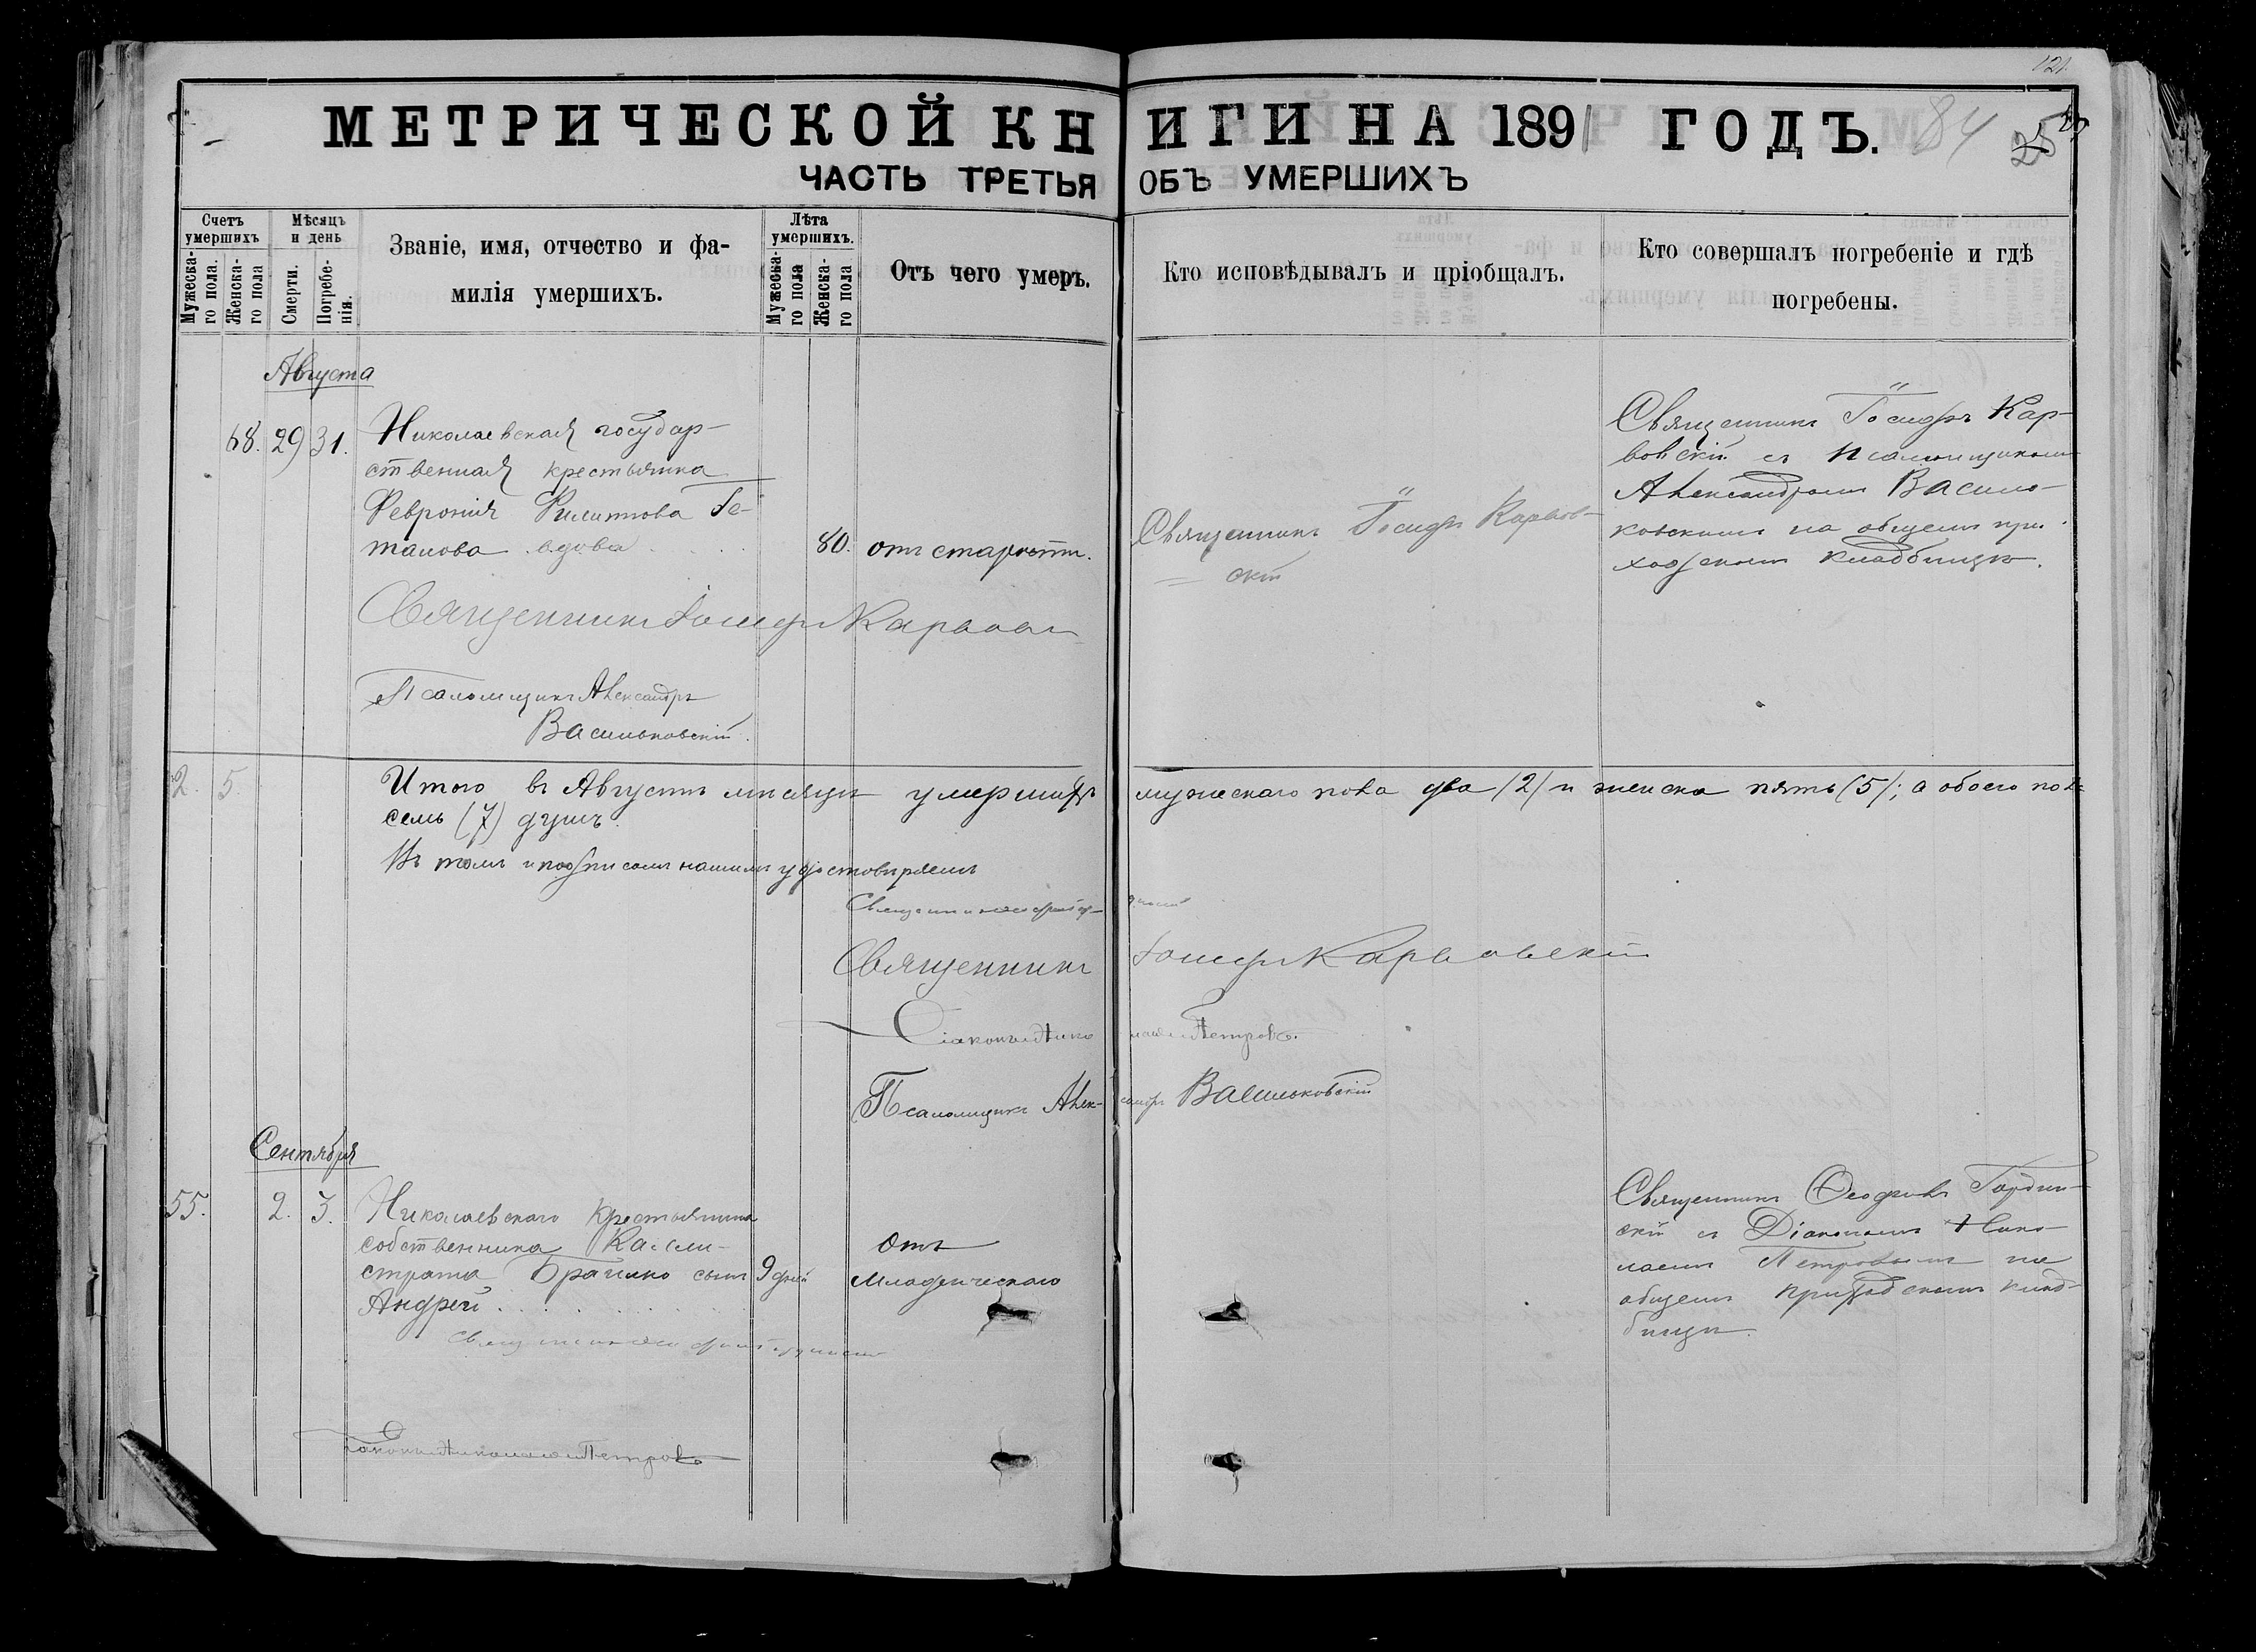 121.
МЕТРИЧЕСКОЙ КНИГИ НА 1891 ГОДЪ.
84
25
ЧАСТЬ ТРЕТЬЯ ОБЪ УМЕРШИХЪ
Счетъ умершихъ
Мужеска-го пола.
Женска-го пола
Мѣсяцъ и день
Смерти.
Погребе-нія.
Званіе, имя, отчество и фа-
милія умершихъ.
Лѣта умершихъ.
Мужеска-го пола
Женска-го пола
Отъ чего умеръ.
Кто исповѣдывалъ и пріобщалъ.
Кто совершалъ погребеніе и гдѣ
погребены.
Августа
68. 29 31.
Николаевская государ-
ственная крестьянка
Февронія Филиппова
вдова
80. отъ старости.
Священникъ Іосифъ Карвов-
скій
Священникъ Іосифъ Кар-
вовскій съ псаломщикомъ
Александромъ Василь-
ковскимъ на общемъ при-
ходскомъ кладбищѣ.
Священникъ Іосифъ Карвовс
Псаломщикъ Александръ
Васильковскій.
2. 5.
Итого въ Августѣ мѣсяцѣ умершихъ мужескаго пола два (2) и женска пять (5); а обоего пола
семь (7) душъ.
Въ томъ и подписомъ нашимъ удостовѣряемъ
Священникъ
Священникъ Іосифъ Карвовскій
Діаконъ Николай Петровъ.
Псаломщикъ Александръ Васильковскій
Сентября
55. 2. 3.
Николаевскаго крестьянина
собственника Калли-
страта сынъ
Андрей
9 дней
Отъ
младенческаго
Священникъ Ѳеофилъ
скій съ Діакономъ Нико-
лаемъ Петровымъ на
общемъ приходскомъ клад-
бищѣ.
Священникъ
Діаконъ Николай Петровъ